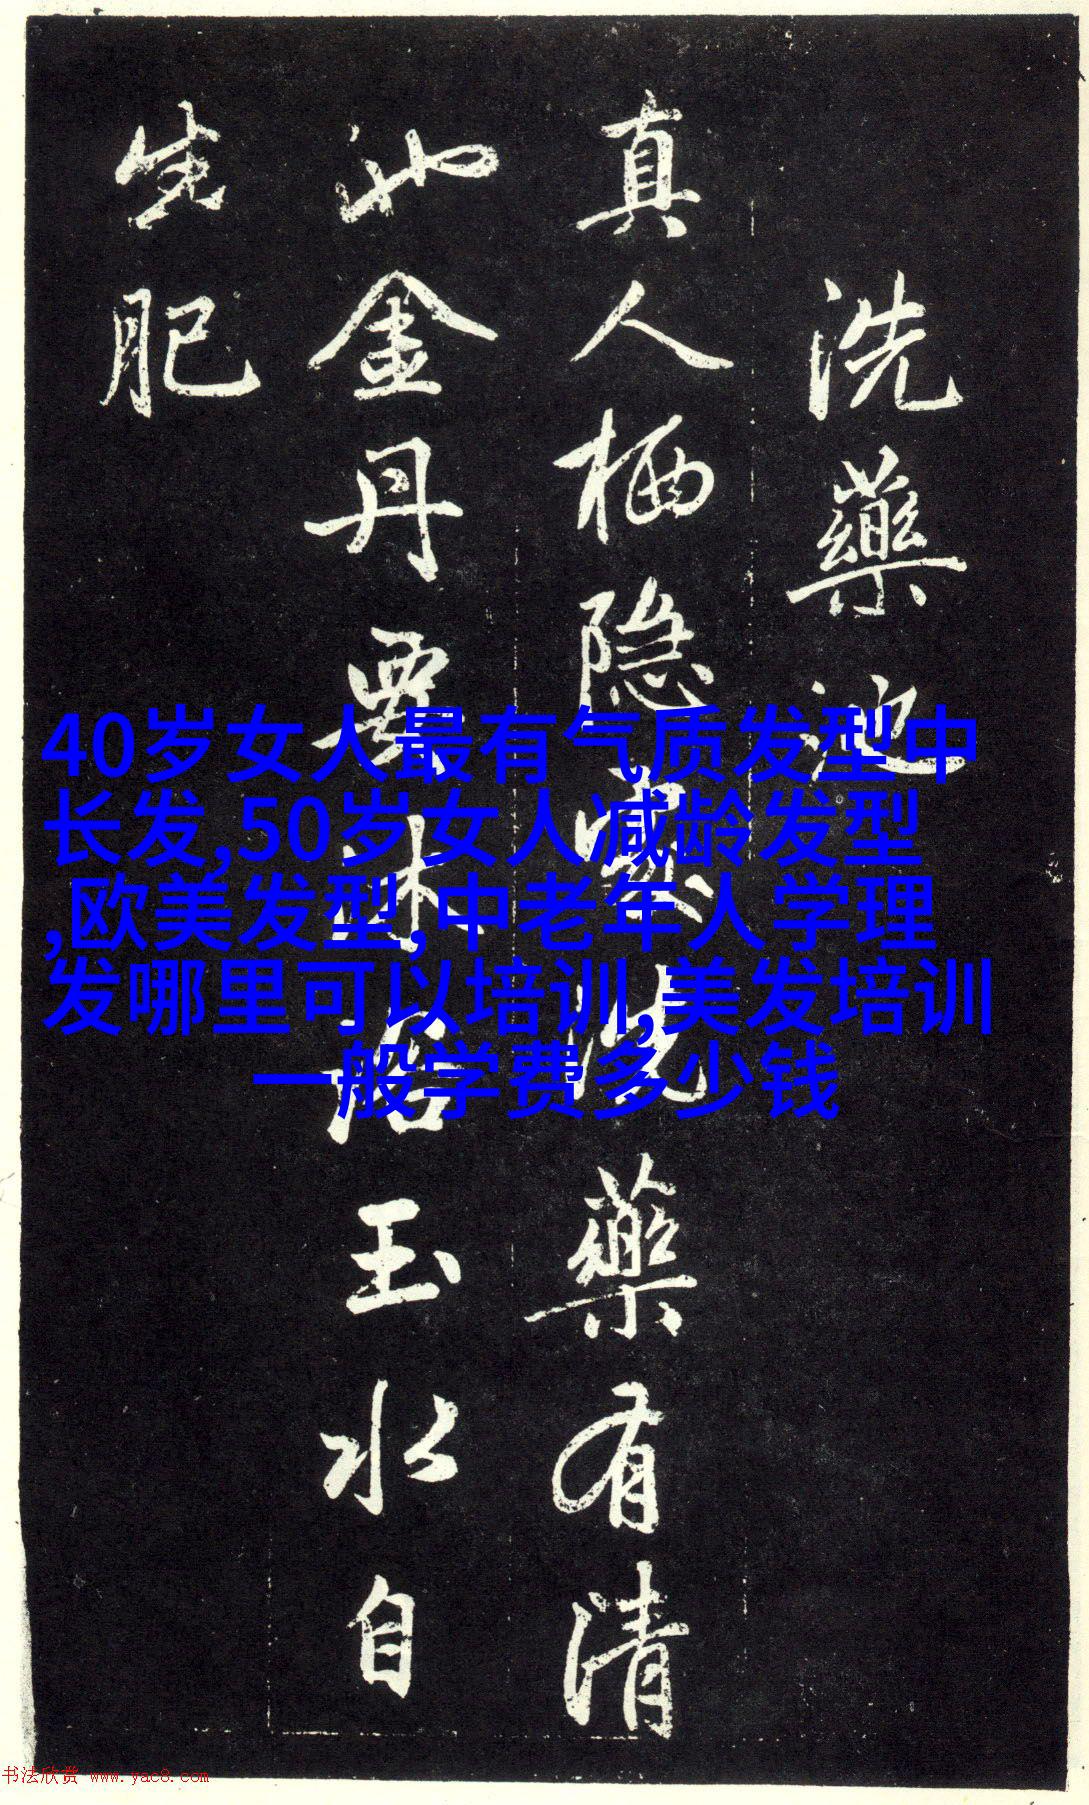 洗藥池
真人栖隐處洗藥有清
池金丹要沐浴玉水自
生肥
40岁女人最有气质发型中
长发,50岁女人减龄发型
,欧美发型,中老年人学理
发哪里可以培训,美发培训
一般学费多少钱
书法欣赏 www.yac8.com